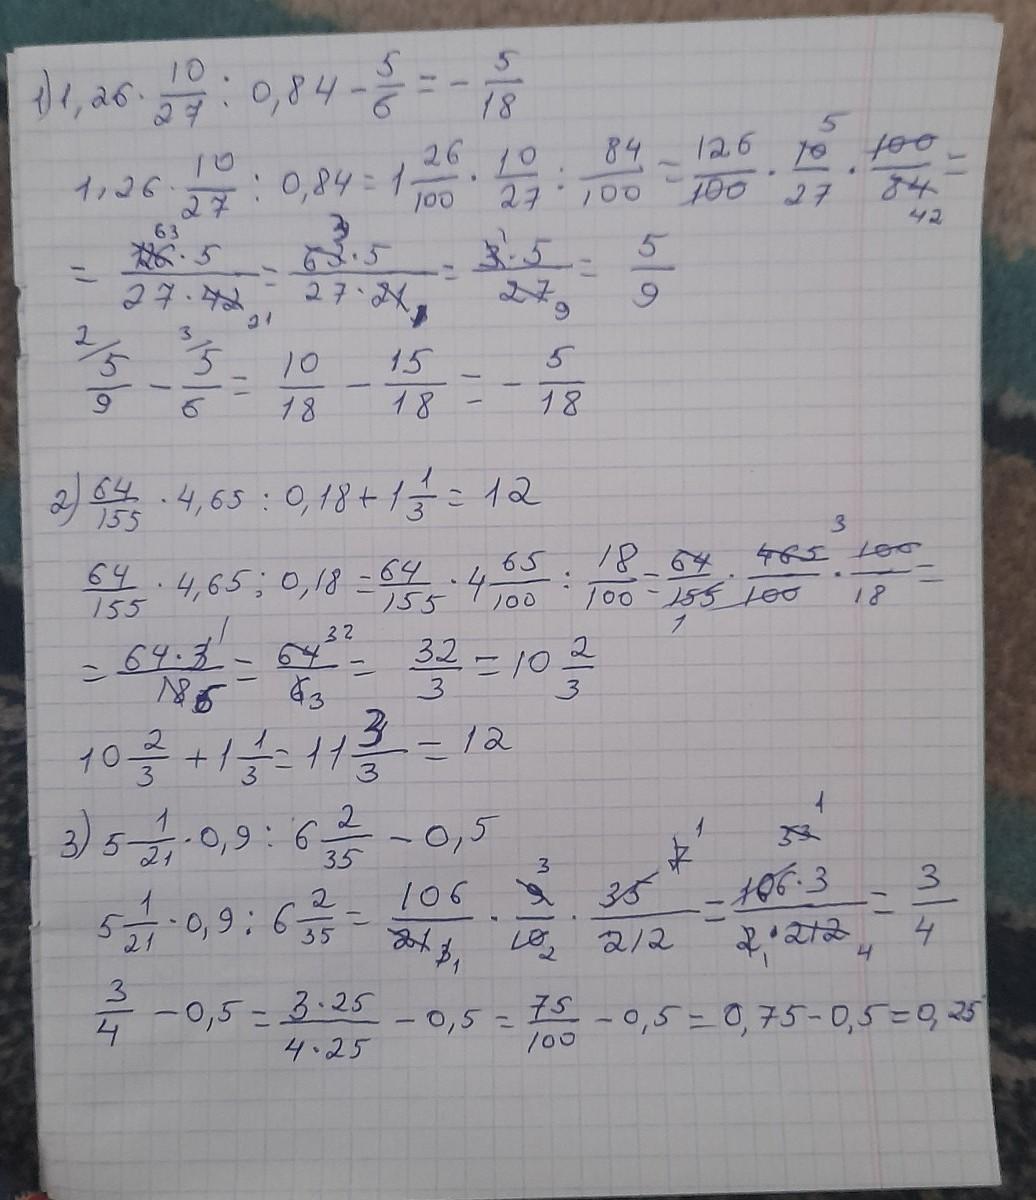 1) 1,26 · 10/27 : 0,84 - 5/6 = - 5/18
1,26 · 10/27 : 0,84 = 1 26/100 · 10/27 : 84/100 = 126/100 · 10/27 5 · 100/84 42 =
= 126 63 · 5 / 27 · 42 21 = 63 3 · 5 / 27 · 21 1 = 3 1 · 5 / 27 9 = 5/9
2/ 5/9 - 3/ 5/6 = 10/18 - 15/18 = - 5/18
2) 64/155 · 4,65 : 0,18 + 1 1/3 = 12
64/155 · 4,65 : 0,18 = 64/155 · 4 65/100 : 18/100 = 64/155 1 · 465 3/100 · 100/18 =
= 64 · 3 1 / 18 6 = 64 32 / 6 3 = 32/3 = 10 2/3
10 2/3 + 1 1/3 = 11 3/3 = 12
3) 5 1/21 · 0,9 : 6 2/35 - 0,5
5 1/21 · 0,9 : 6 2/35 = 106 / 21 3 1 · 9 3 / 10 2 · 35 7 1 / 212 = 106 53 1 · 3 / 2 1 · 212 4 = 3/4
3/4 - 0,5 = 3 · 25 / 4 · 25 - 0,5 = 75/100 - 0,5 = 0,75 - 0,5 = 0,25